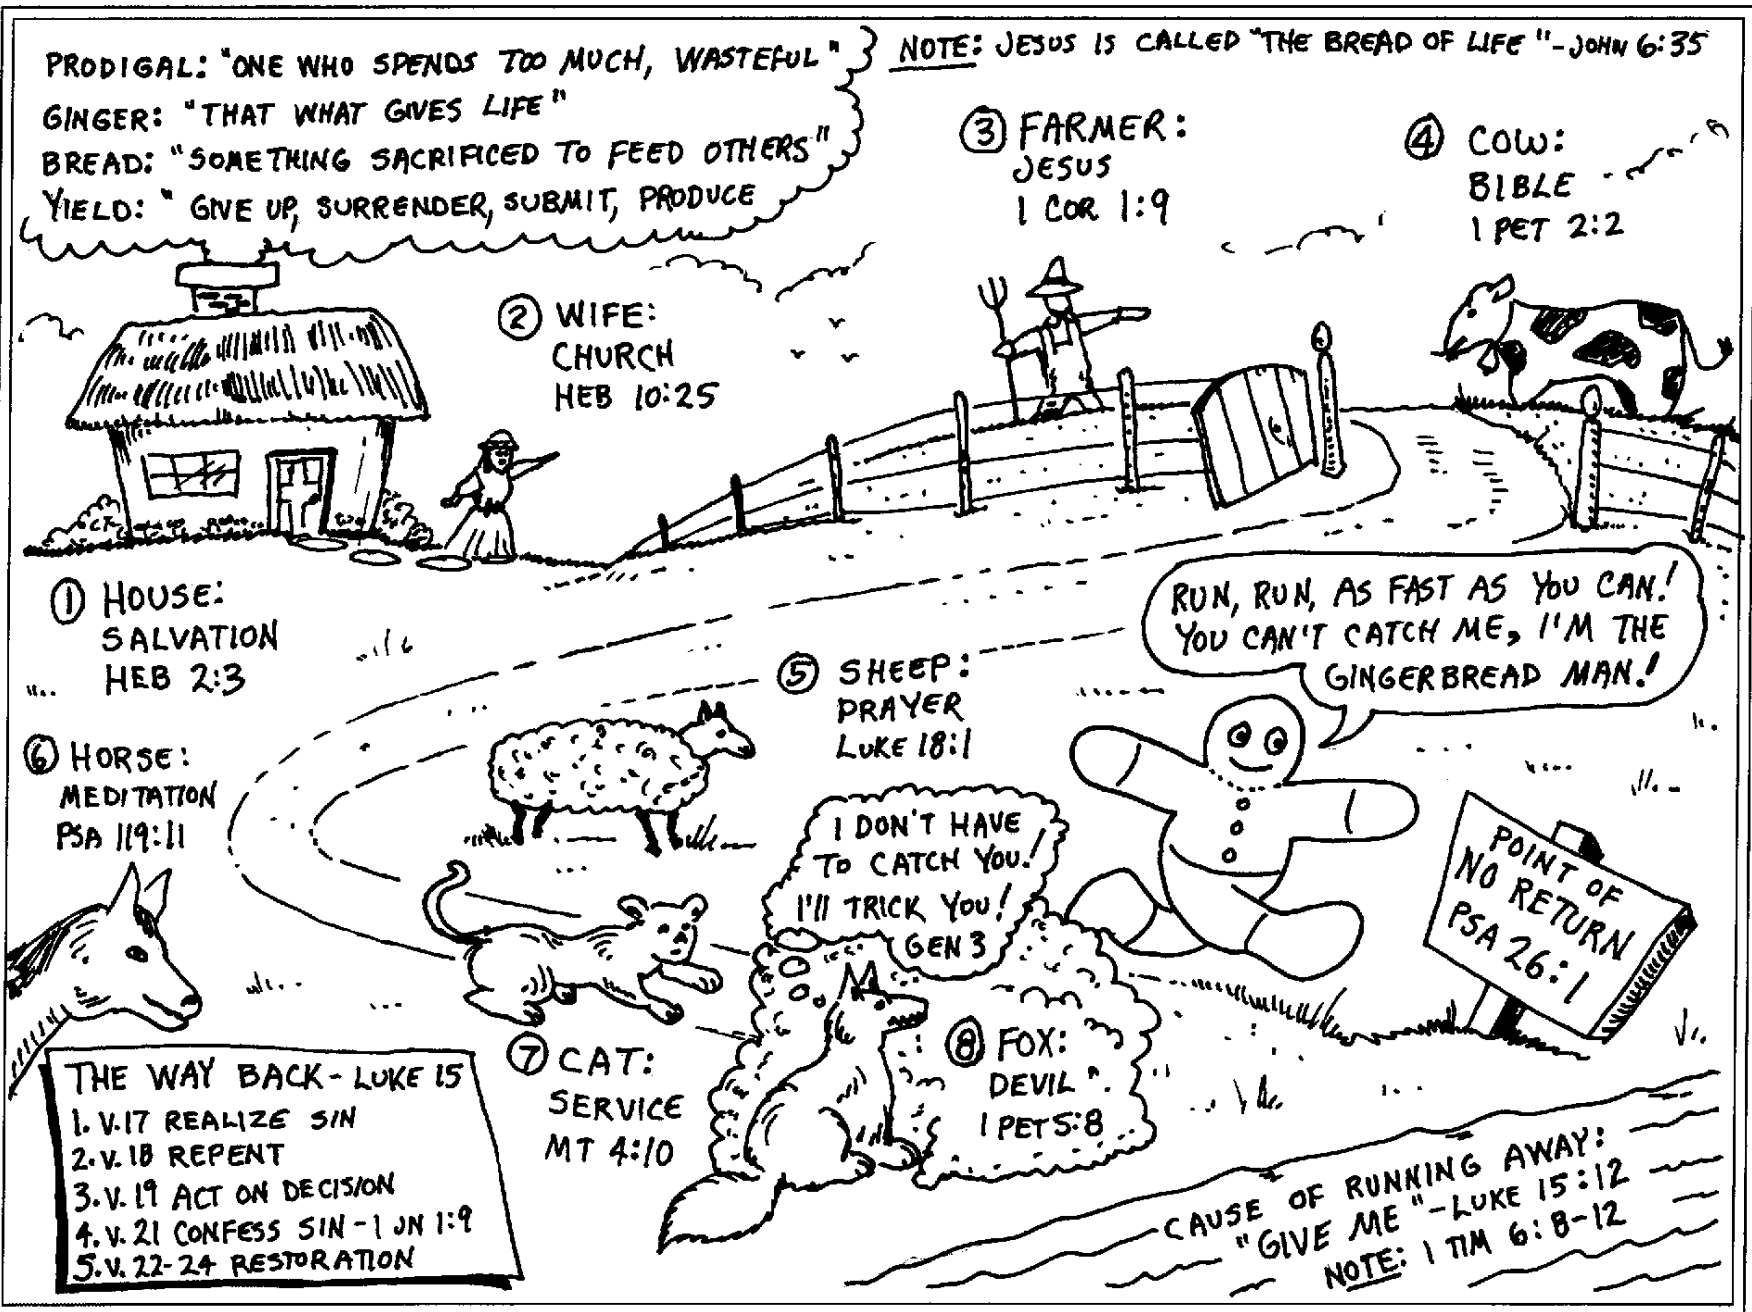 PRODIGAL: "ONE WHO SPENDS TOO MUCH, WASTEFUL"
GINGER: "THAT WHAT GIVES LIFE"
BREAD: "SOMETHING SACRIFICED TO FEED OTHERS"
YIELD: " GIVE UP, SURRENDER, SUBMIT, PRODUCE
NOTE: JESUS IS CALLED "THE BREAD OF LIFE" - JOHN 6:35
① HOUSE:
SALVATION
HEB 2:3
② WIFE:
CHURCH
HEB 10:25
③ FARMER:
JESUS
1 COR 1:9
④ COW:
BIBLE
1 PET 2:2
RUN, RUN, AS FAST AS YOU CAN!
YOU CAN'T CATCH ME, I'M THE
GINGERBREAD MAN!
⑤ SHEEP:
PRAYER
LUKE 18:1
⑥ HORSE:
MEDITATION
PSA 119:11
I DON'T HAVE
TO CATCH YOU!
I'll TRICK YOU!
GEN 3
POINT OF
NO RETURN
PSA 26:1
⑦ CAT:
SERVICE
MT 4:10
⑧ FOX:
DEVIL
1 PET 5:8
THE WAY BACK - LUKE 15
1. V.17 REALIZE SIN
2. V.18 REPENT
3. V.19 ACT ON DECISION
4. V.21 CONFESS SIN - 1 JN 1:9
5. V.22-24 RESTORATION
CAUSE OF RUNNING AWAY:
"GIVE ME" - LUKE 15:12
NOTE: 1 TIM 6:8-12